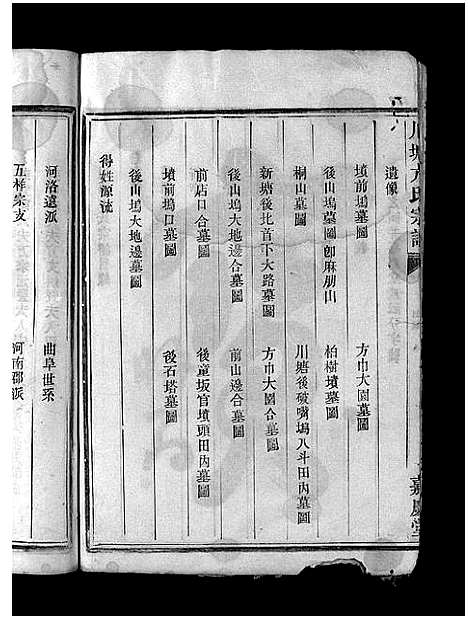 川塘方氏宗譜
嘉慶堂
遺像
墳前塢墓圖 方巾大園墓圖
後山塢墓圖卽麻朋山 柏樹墳墓圖
桐山墓圖 川塘後破嘴塢八斗田內墓圖
新塘後北首下大路墓圖 方巾大園合墓圖
後山塢大地邊合墓圖 前山邊合墓圖
前店口合墓圖 後童坂官墳頭田內墓圖
墳前塢口墓圖 後石塔墓圖
後山塢大地邊墓圖
得姓源流
河洛遺派 曲阜世系
五桂宗支 河南邵派